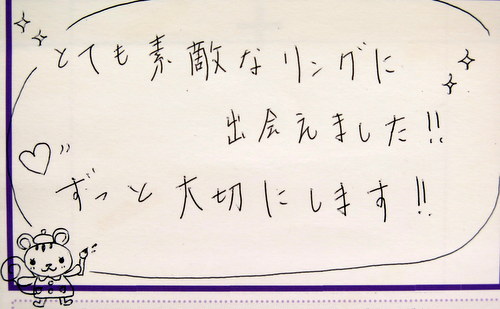 とても素敵なリングに
出会えました!!
ずっと大切にします!!